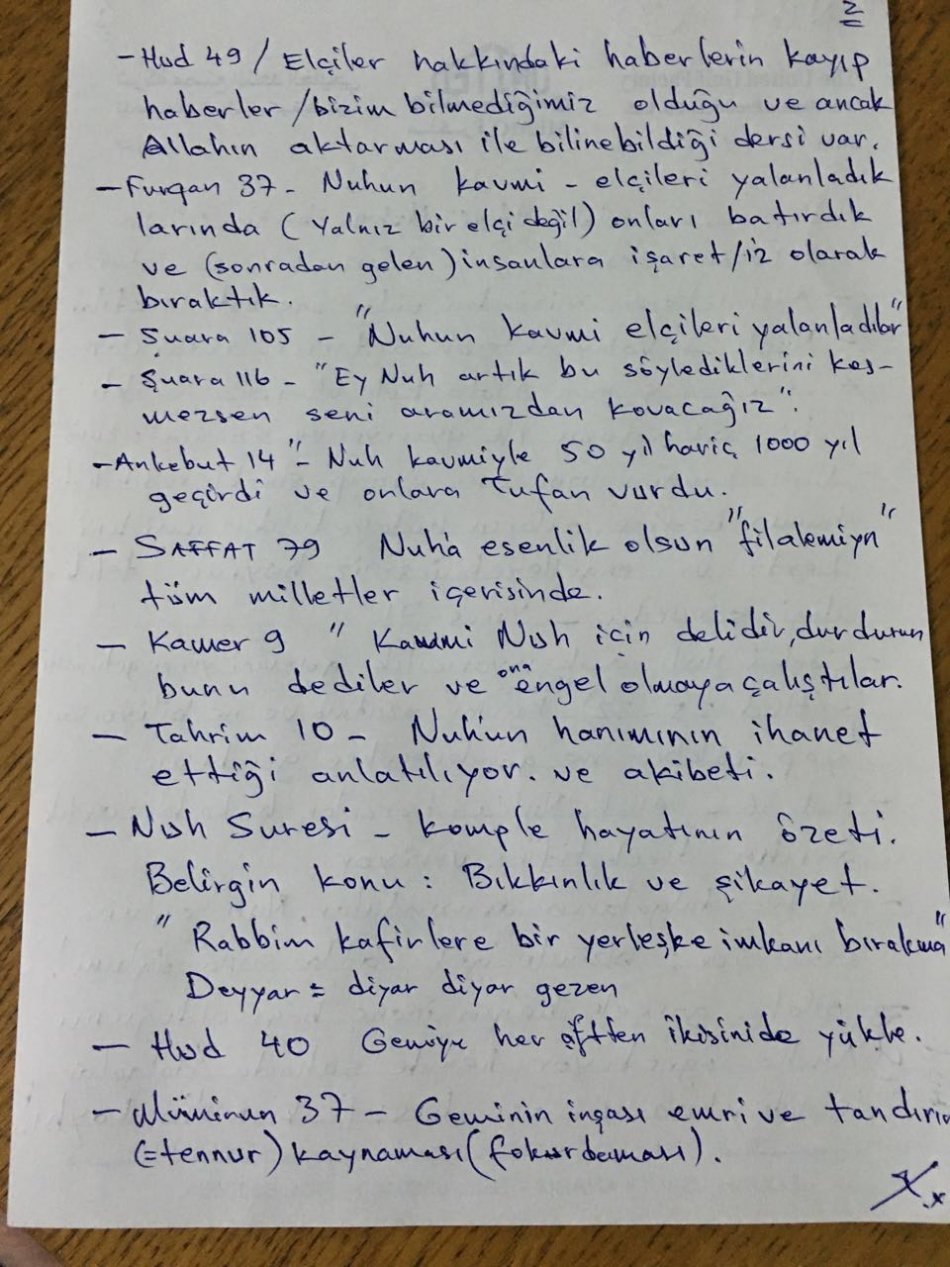 2
- Hud 49 / Elçiler hakkındaki haberlerin kayıp
haberler / bizim bilmediğimiz olduğu ve ancak
Allahın aktarması ile bilinebildiği dersi var.
- Furqan 37 - Nuhun kavmi - elçileri yalanladık
larında ( Yalnız bir elçi değil) onları batırdık
ve (sonradan gelen) insanlara işaret/iz olarak
bıraktık.
- Şuara 105 - "Nuhun kavmi elçileri yalanladılar"
- Şuara 116 - "Ey Nuh artık bu söylediklerini kes-
mezsen seni aramızdan kovacağız".
- Ankebut 14 "- Nuh kavmiyle 50 yıl hariç 1000 yıl
geçirdi ve onlara Tufan vurdu.
- SAFFAT 79 Nuha esenlik olsun "filalemiyn"
tüm milletler içerisinde.
- Kamer 9 " Kavmi Nuh için delidir, durdurun
bunu dediler ve ona engel olmaya çalıştılar.
- Tahrim 10 - Nuh'un hanımının ihanet
ettiği anlatılıyor. ve akibeti.
- Nuh Suresi - komple hayatının özeti.
Belirgin konu : Bıkkınlık ve şikayet.
" Rabbim kafirlere bir yerleşke imkanı bırakma"
Deyyar = diyar diyar gezen
- Hud 40 Gemiye her çiftten ikisinide yükle.
- Müminun 37 - Geminin inşası emri ve tandırın
(=tennur) kaynaması (fokurdaması).